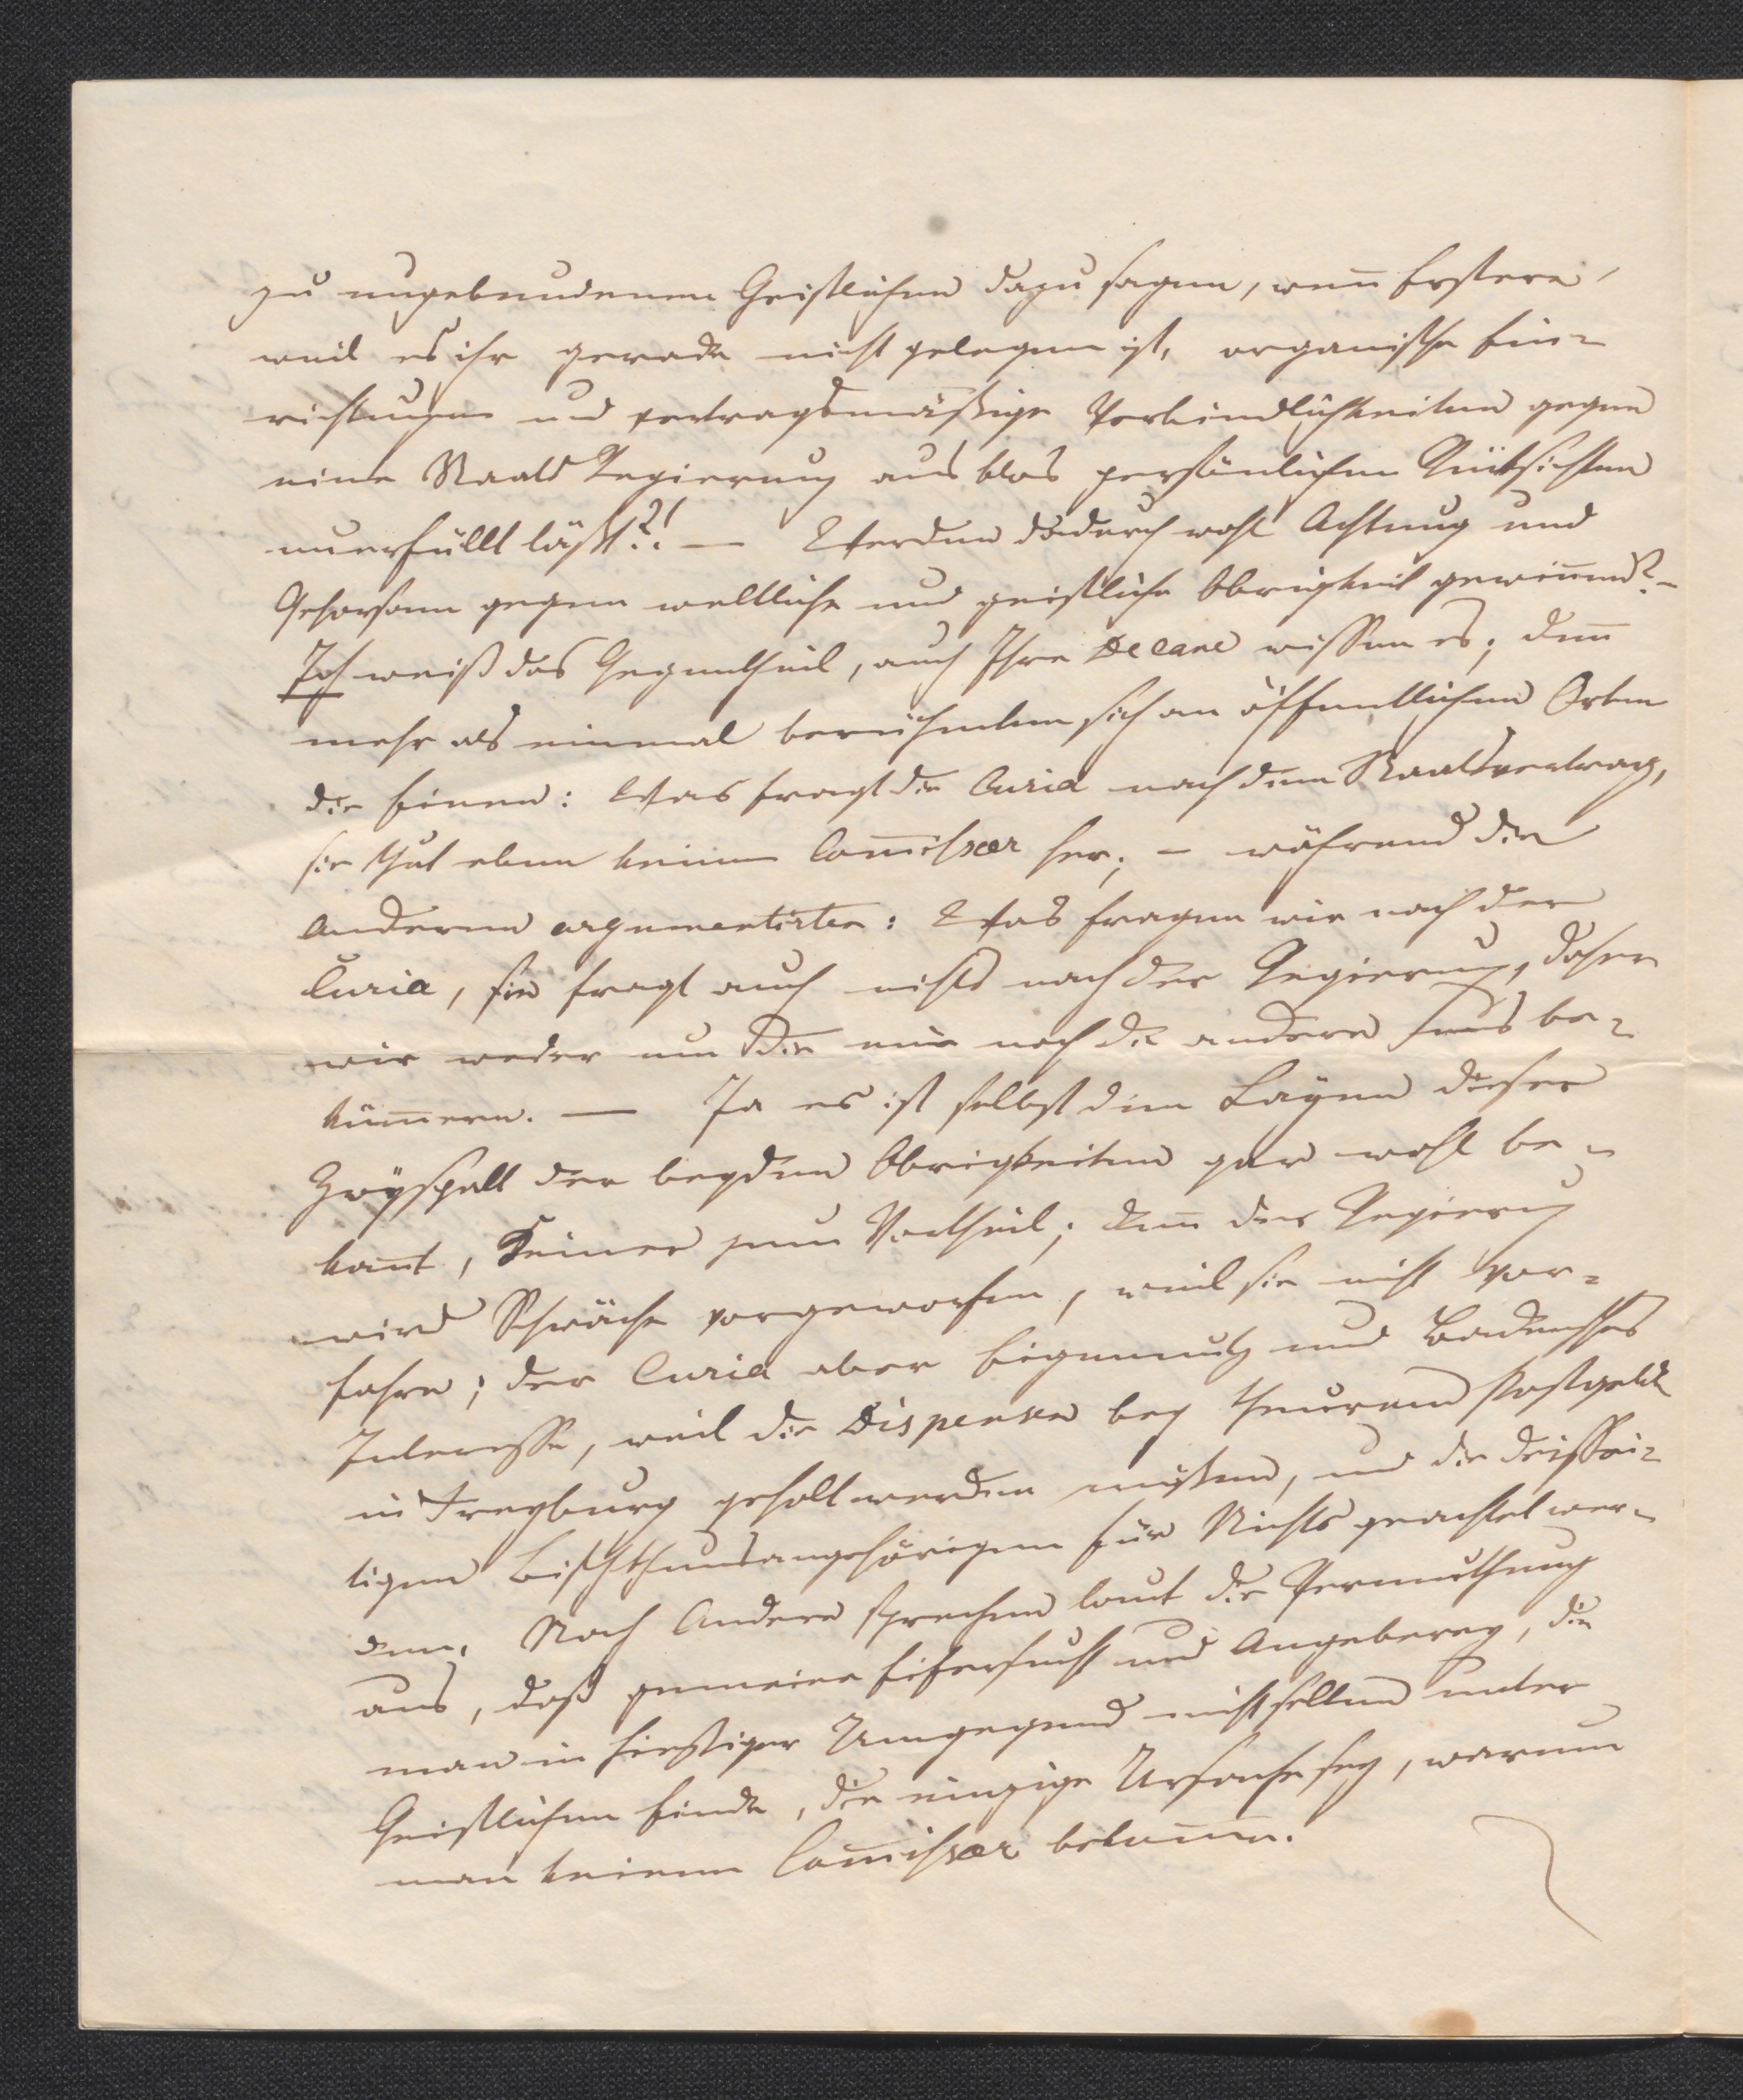 zu ungebundenen Geistlichen dazu sagen, wenn Erstere,
weil es ihr gerade nicht gelegen ist, organische Ein-
richtungen und vertragsmäßige Verbindlichkeiten gegen
eine Staats Regierung aus blos persönlichen Rücksichten
unerfüllt läßt?! — Werden dadurch wohl Achtung und
Gehorsam gegen weltliche und geistliche Obrigkeit gewinnen? –
Ich weiß das Gegentheil, auch Ihre Decane wissen es; denn
mehr als einmal berühmten sich an öffentlichen Orten
die Einen: Was fragt die Curia nach dem Staatsvertrag,
sie thut eben keinen Com̄issaer her; – während die
Anderen argumentirten: Was fragen wir nach der
Curia, sie fragt auch nichts nach der Regierung, daher
wir weder um die eine noch die andere uns be-
küm̄ern. — Ja es ist selbst den Layen dieser
Zwyspalt der beyden Obrigkeiten gar wohl be-
kan̄t, Keiner zum Vortheil; denn der Regierung
wird Schwäche vorgeworfen, weil sie nicht vor-
fahre; der Curia aber Eigennutz und Badensches
Interesse, weil die Dispensen bey theurem Postgelde
in Freyburg geholt werden müßen, und die dissei-
tigen Bisthumsangehörigen für Nichts geachtet wer-
den. Noch Andere sprechen laut die Vermuthung
aus, daß gemeine Eifersucht und Angeberey, die
man in hiesiger Umgegend nicht selten unter
Geistlichen finde, die einzige Ursache sey, warum
man keinen Com̄issaer bekom̄e.